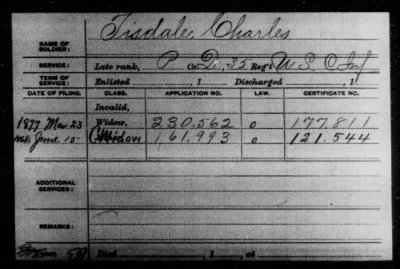 Tisdale, Charles
NAME OF SOLDIER:
SERVICE: Late rank, P Co. D, 35 Reg't U S C Inf
TERM OF SERVICE: Enlisted , 1 Discharged , 1
DATE OF FILING. CLASS. APPLICATION NO. LAW. CERTIFICATE NO.
Invalid,
1877 Mar 23 Widow, 230.562 o 177.811
1868, June 15 C. Widow 161.993 o 121.544
ADDITIONAL SERVICES:
REMARKS:
Died , 1 , at